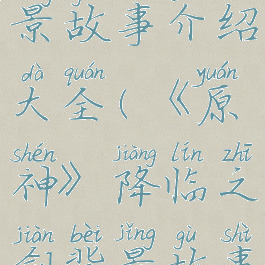 景故事介绍
dà quán yuán
大全（《原
shén jiàng lín zhī
神》 降临之
jiàn bèi jǐng gù shì
剑背景故事